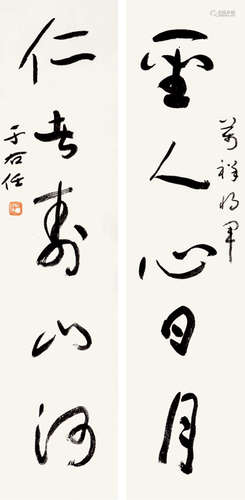 聖人心日月
萬祥將軍
仁者壽山河
于右任